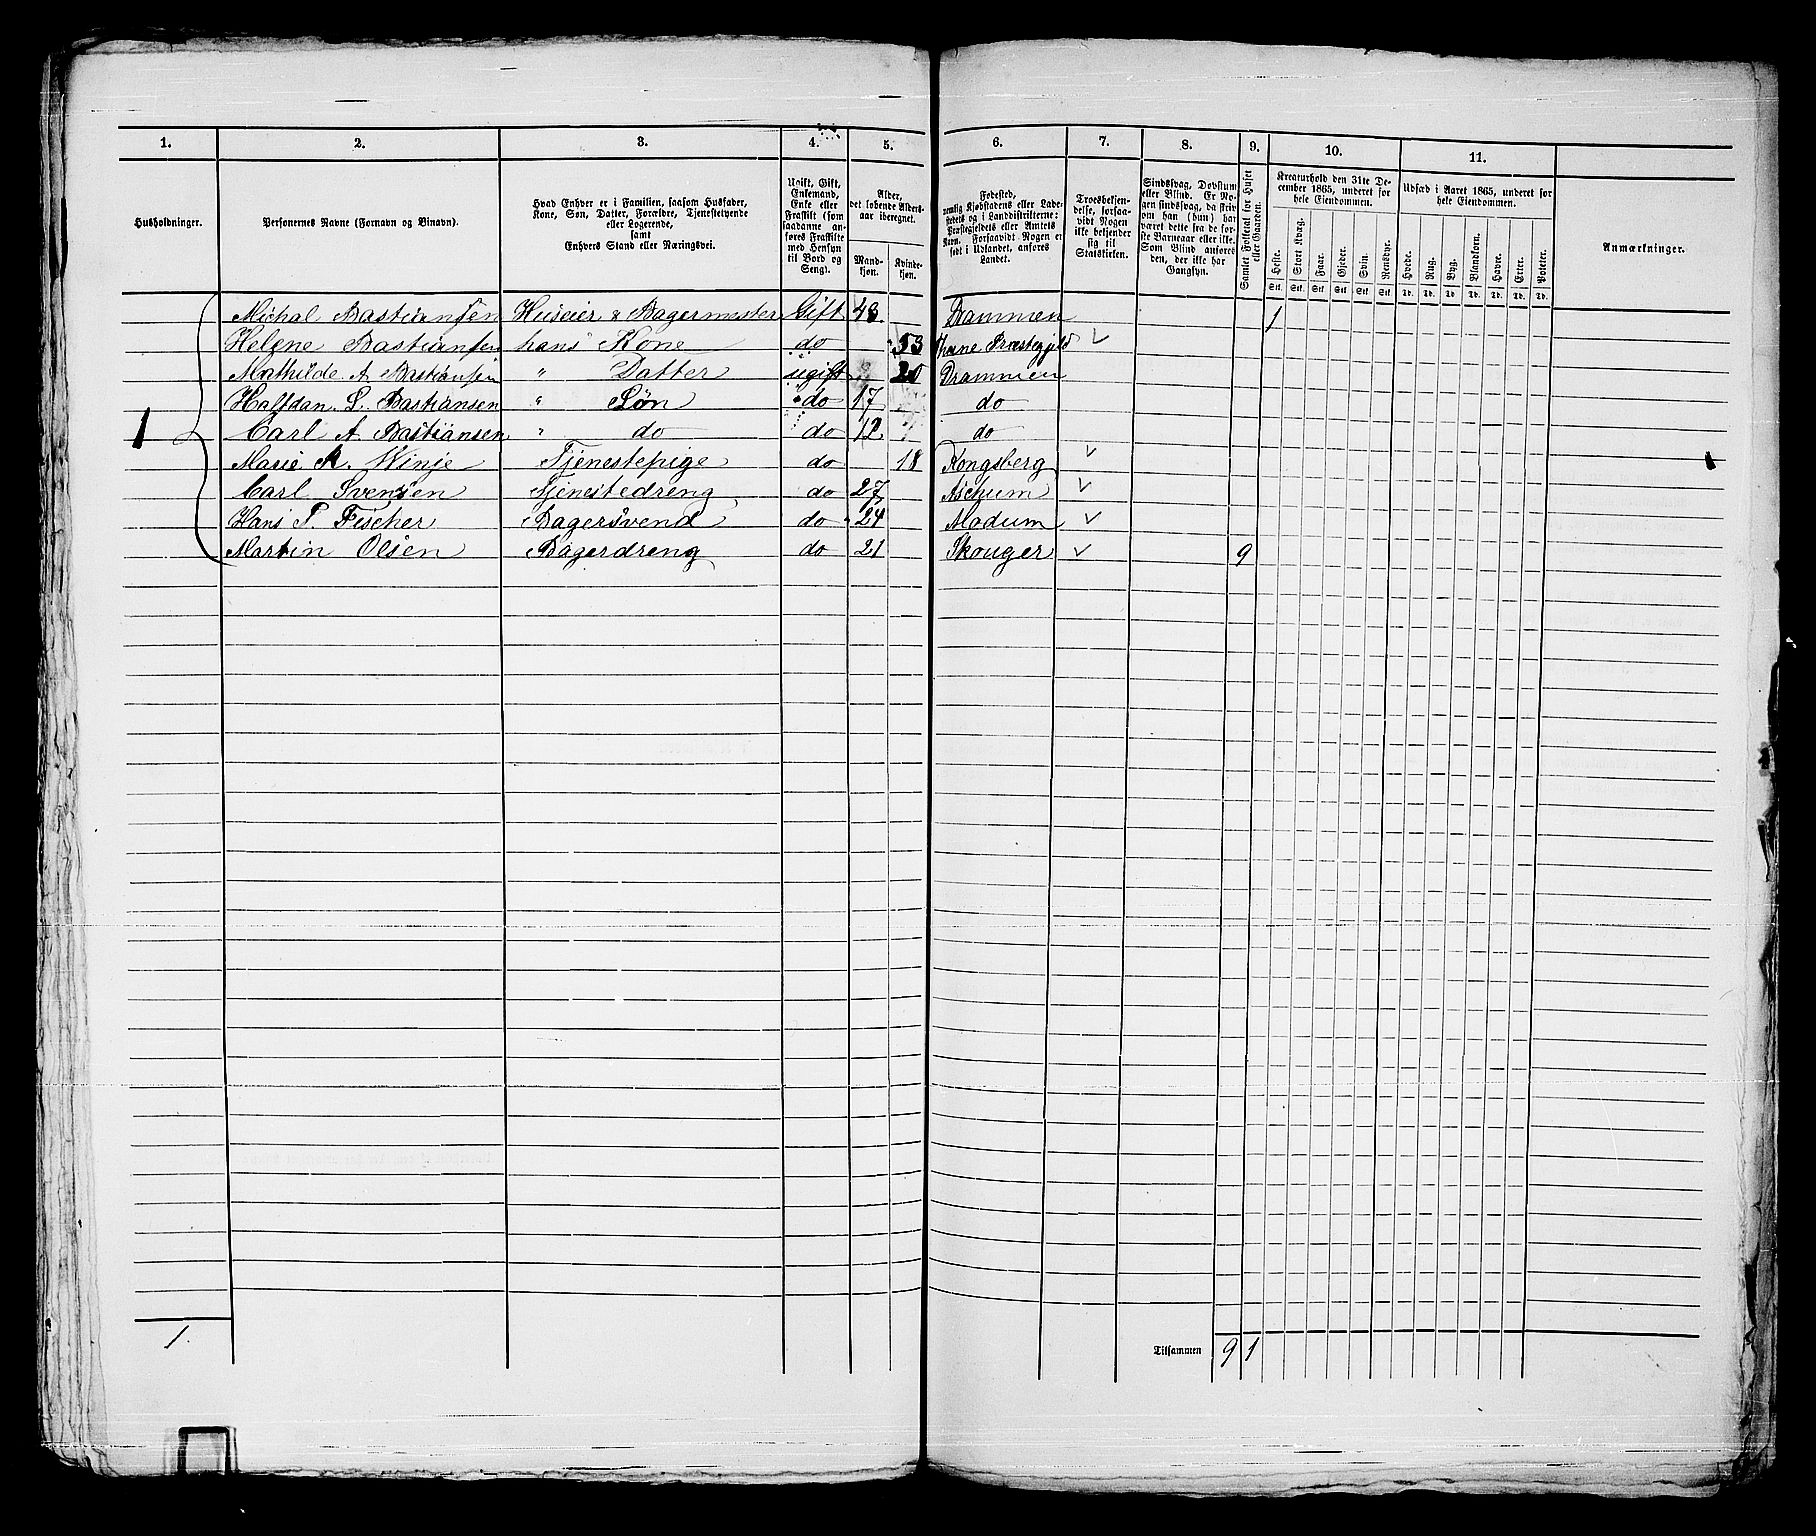 1. 2. 3. 4. 5. 6. 7. 8. 9. 10. 11.
Husholdninger.
Personernes Navne (Fornavn og Binavn).
Hvad Enhver er i Familien, saasom Husfader,
Kone, Søn, Datter, Forældre, Tjenestetyende
eller Logerende,
samt
Enhvers Stand eller Næringsvei.
Ugift, Gift,
Enkemand,
Enke eller
Fraskilt (som
saadanne an-
føres Fraskilte
med Hensyn
til Bord og
Seng).
Alder,
det løbende Alders-
aar iberegnet.
Mand-
kjøn.
Kvinde-
kjøn.
Fødested,
nemlig Kjøbstadens eller Lade-
stedets og i Landdistrikterne:
Præstegjeldets eller Amtets
Navn. Forsaavidt Nogen er
født i Udlandet, anføres
Landet.
Troesbekjen-
delse, forsaa-
vidt Nogen
ikke bekjender
sig til
Statskirken.
Sindssvag, Døvstum
eller Blind. Er No-
gen sindssvag, da skriv
om han (hun) har
været dette fra de før-
ste Barneaar eller ikke.
Som Blind anføres
den, der ikke har
Gangsyn.
Samlet Folketal for Huset
eller Gaarden.
Kreaturhold den 31te De-
cember 1865, underet for
hele Eiendommen.
Heste. Stort Kvæg. Faar. Gjeder. Svin. Rensdyr.
Stk. Stk. Stk. Stk. Stk. Stk.
Udsæd i Aaret 1865, underet for
hele Eiendommen.
Hvede. Rug. Byg. Blandkorn. Havre. Erter. Poteter.
Td. Td. Td. Td. Td. Td. Td.
Anmærkninger.
Michal Bastiansen Huseier & Bagermester Gift 48. Drammen 1
Helene Bastiansen hans Kone do 53 Præstegjeld
Mathilde A Bastiansen " Datter ugift 20 Drammen
Halfdan. S. Bastiansen " Søn do 17 do
1 Carl A Bastiansen " do do 12 do
Marie A. Winje Tjenestepige do 18 Kongsberg
Carl Svensen Tjenestedreng do 27
Hans P. Fischer Bagersvend do 24 Modum
Martin Olsen Bagerdreng do 21 Skouger 9
1.
Tilsammen 9 1